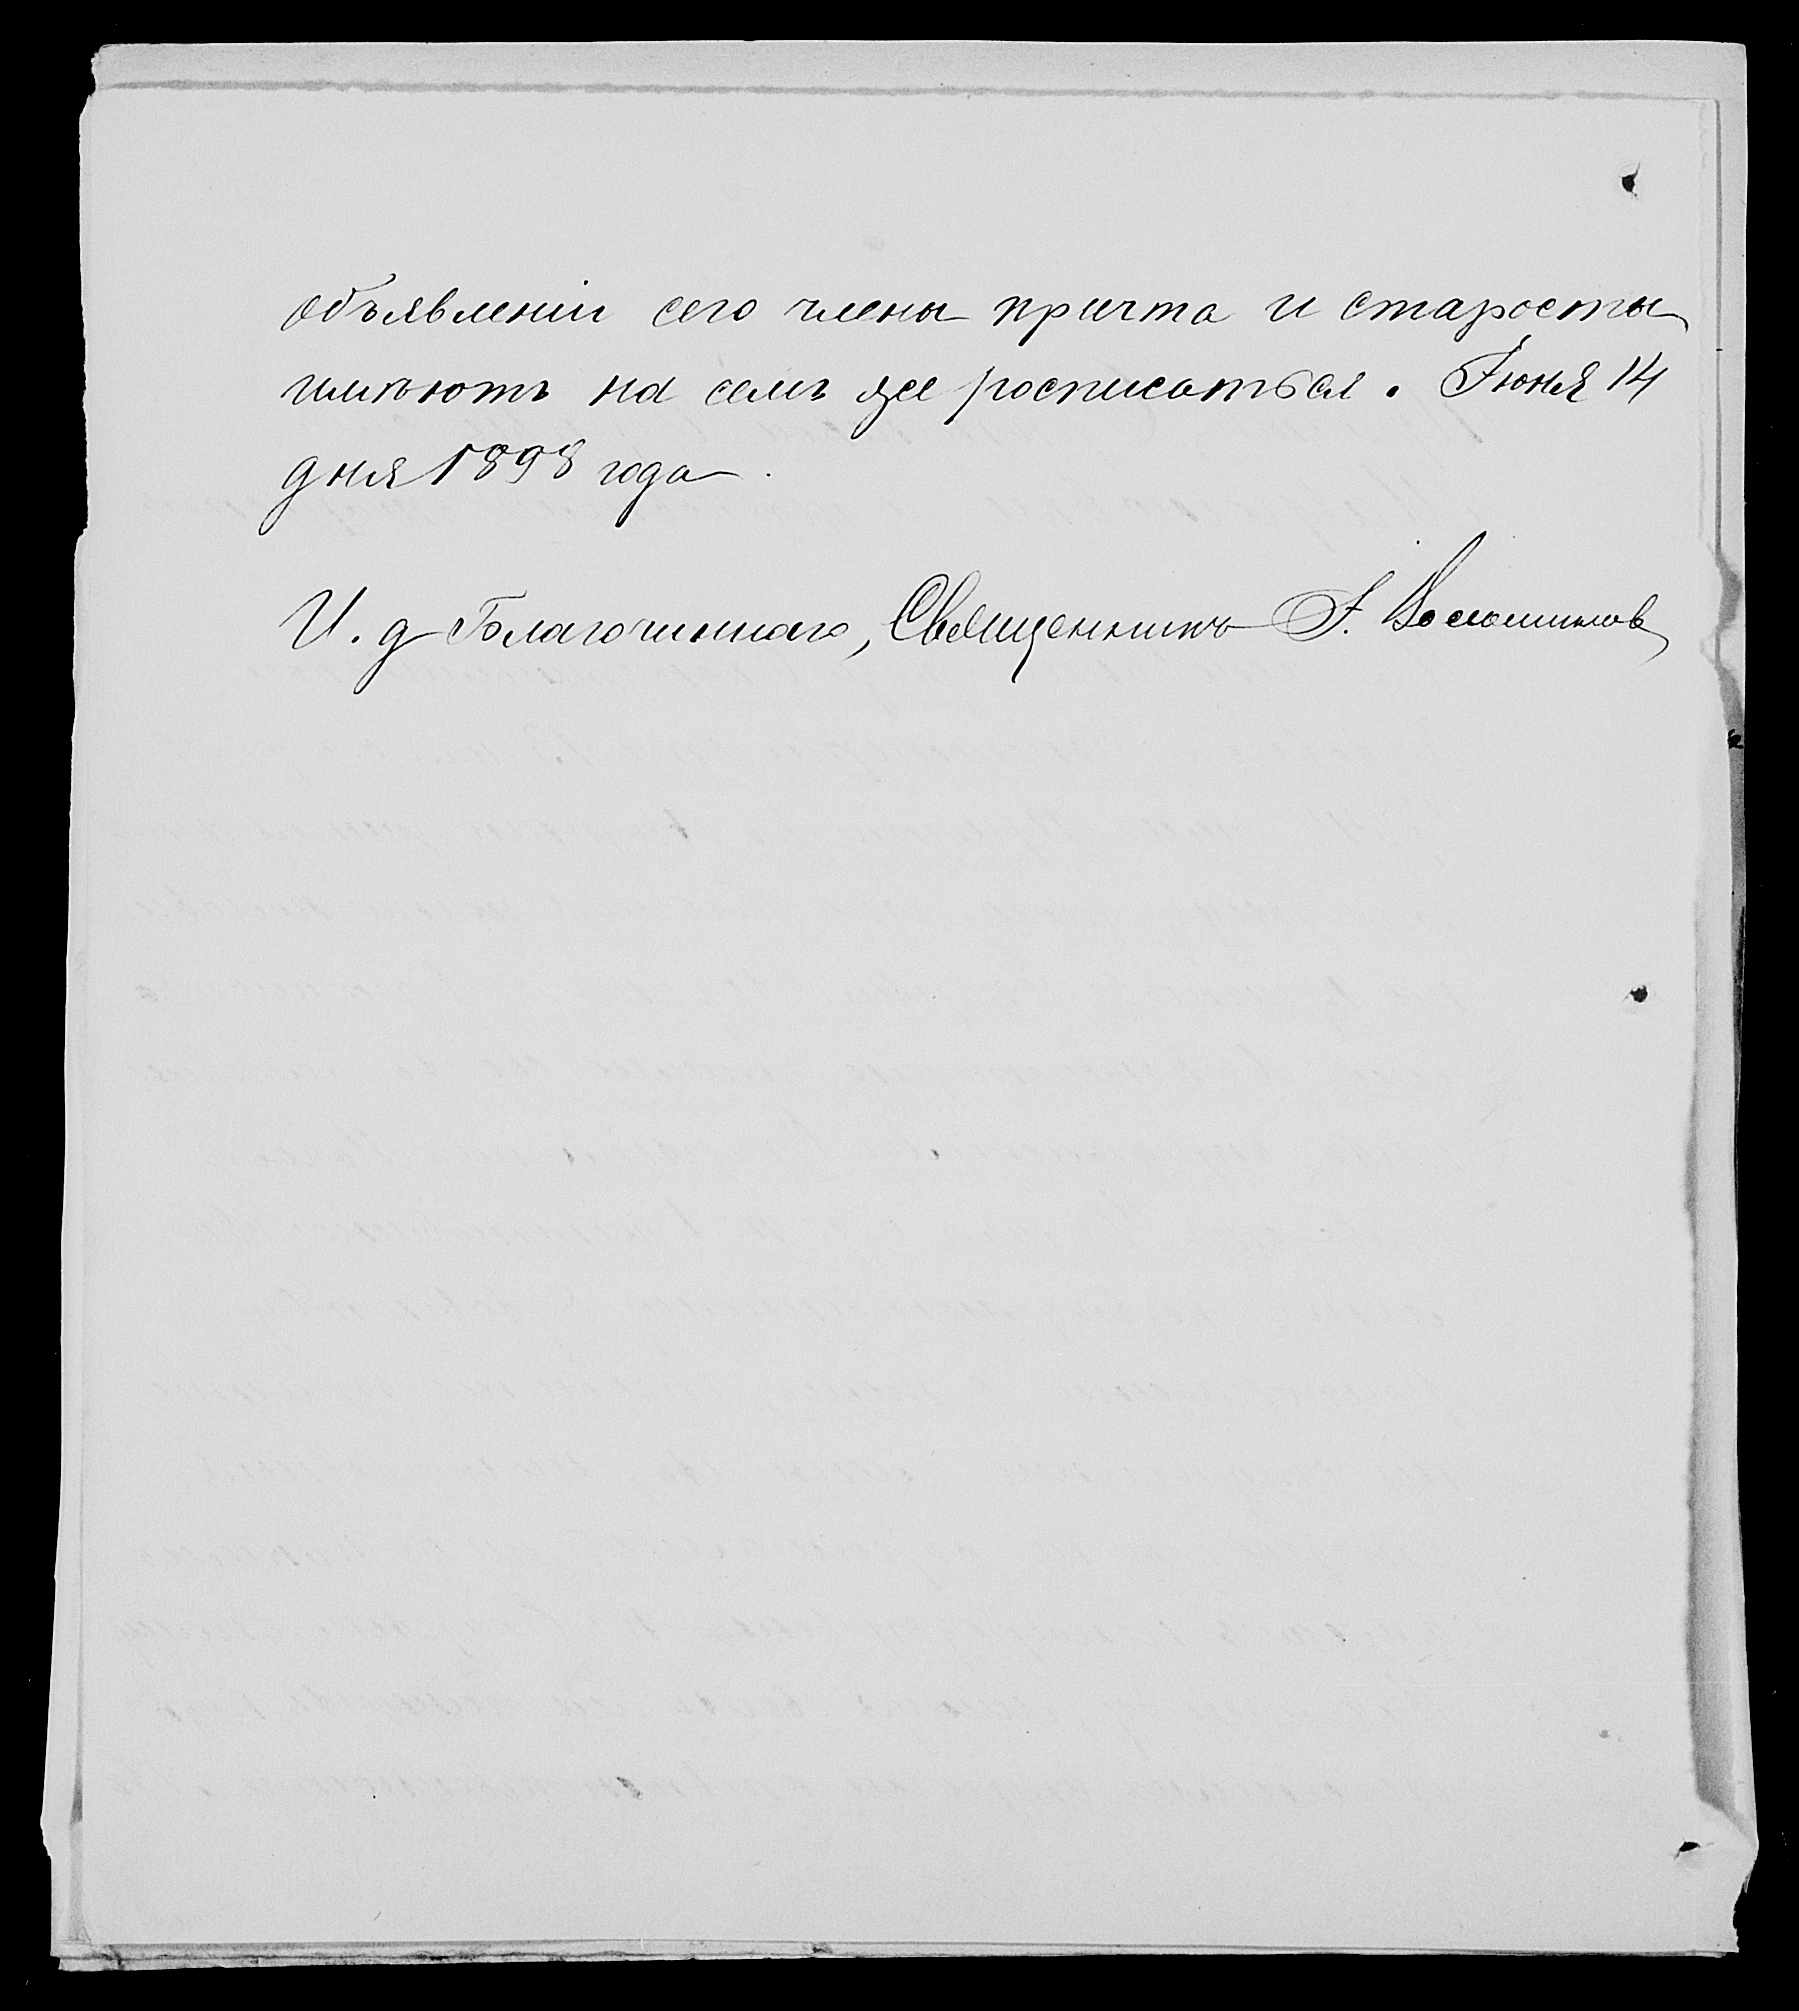 объявленіи сего члены причта и старосты
имѣютъ на семъ же росписаться. Іюня 14
дня 1898 года.
И. д Благочиннаго, Священникъ І.